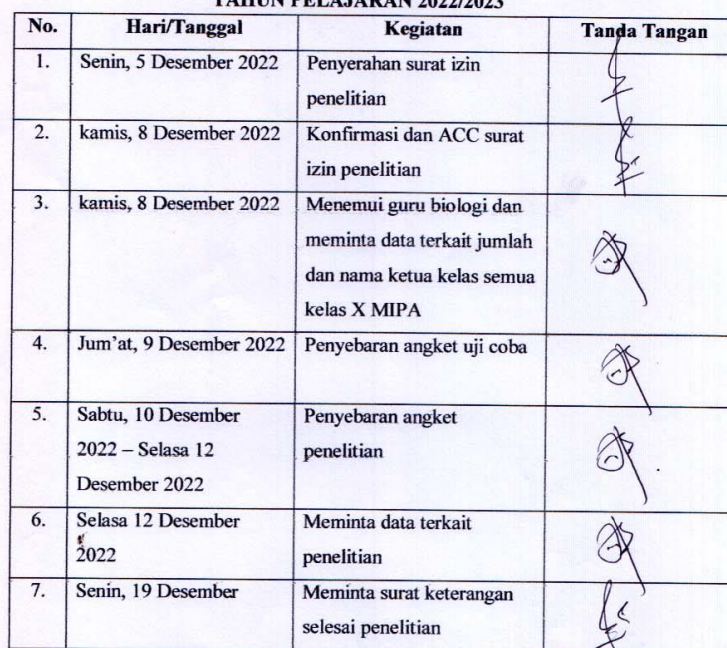 TAHUN PELAJARAN 2022/2023
No. Hari/Tanggal Kegiatan Tanda Tangan
1. Senin, 5 Desember 2022 Penyerahan surat izin
penelitian
2. kamis, 8 Desember 2022 Konfirmasi dan ACC surat
izin penelitian
3. kamis, 8 Desember 2022 Menemui guru biologi dan
meminta data terkait jumlah
dan nama ketua kelas semua
kelas X MIPA
4. Jum'at, 9 Desember 2022 Penyebaran angket uji coba
5. Sabtu, 10 Desember Penyebaran angket
2022 – Selasa 12 penelitian
Desember 2022
6. Selasa 12 Desember Meminta data terkait
2022 penelitian
7. Senin, 19 Desember Meminta surat keterangan
selesai penelitian